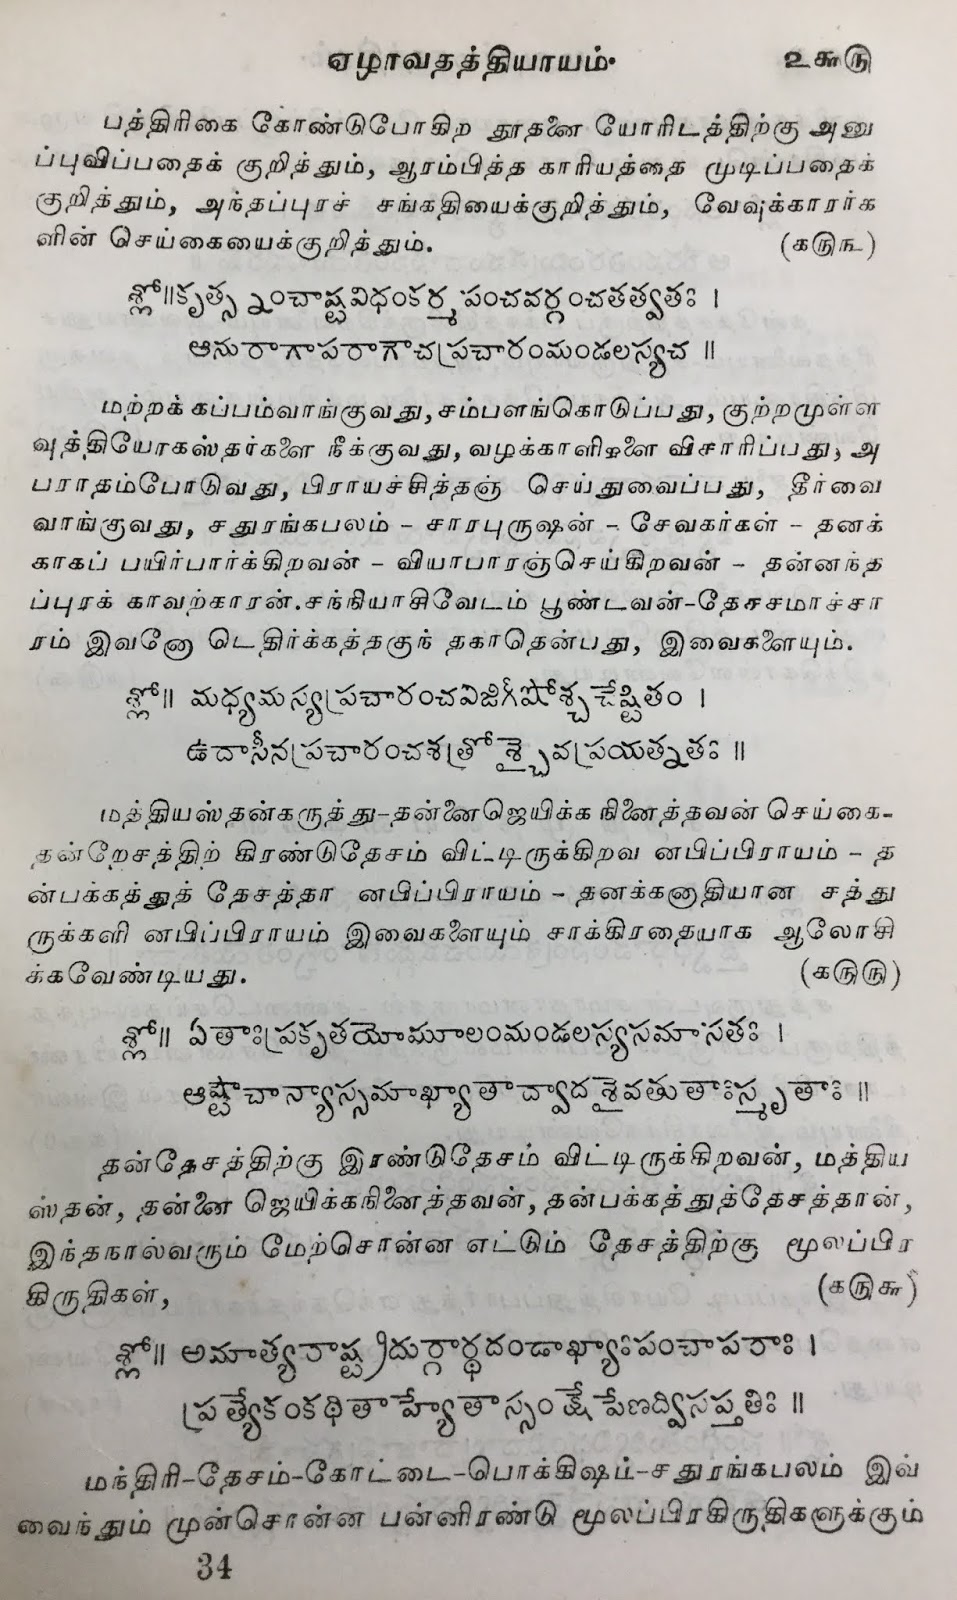 ஏழாவதத்தியாயம்.    ௨௬௫
பத்திரிகை கோண்டுபோகிற தூதனை யோரிடத்திற்கு அனு
ப்புவிப்பதைக் குறித்தும், ஆரம்பித்த காரியத்தை முடிப்பதைக்
குறித்தும், அந்தப்புரச் சங்கதியைக்குறித்தும், வேவுக்காரர்க
ளின் செய்கையைக்குறித்தும்.    (௧௫௩)
శ్లో॥కృత్స్నంచాష్టవిధంకర్మపంచవర్గంచతత్వతః ।
ఆనురాగాపరాగౌచప్రచారంమండలస్యచ ॥
மற்றக் கப்பம்வாங்குவது, சம்பளங்கொடுப்பது, குற்றமுள்ள
வுத்தியோகஸ்தர்களை நீக்குவது, வழக்காளிகளை விசாரிப்பது, அ
பராதம்போடுவது, பிராயச்சித்தஞ் செய்துவைப்பது, தீர்வை
வாங்குவது, சதுரங்கபலம் - சாரபுருஷன் - சேவகர்கள் - தனக்
காகப் பயிர்பார்க்கிறவன் - வியாபாரஞ்செய்கிறவன் - தன்னந்த
ப்புரக் காவற்காரன். சந்நியாசிவேடம் பூண்டவன்-தேசசமாச்சா
ரம் இவனோ டெதிர்க்கத்தகுந் தகாதென்பது, இவைகளையும்.
శ్లో॥ మధ్యమస్యప్రచారంచవిజిగీషోశ్చచేష్టితం ।
ఉదాసీనప్రచారంచశత్రోశ్చైవప్రయత్నతః ॥
மத்தியஸ்தன்கருத்து-தன்னைஜெயிக்க நினைத்தவன் செய்கை-
தன்றேசத்திற் கிரண்டுதேசம் விட்டிருக்கிறவ னபிப்பிராயம் - த
ன்பக்கத்துத் தேசத்தா னபிப்பிராயம் - தனக்கனாதியான சத்து
ருக்களி னபிப்பிராயம் இவைகளையும் சாக்கிரதையாக ஆலோசி
க்கவேண்டியது.    (௧௫௫)
శ్లో॥ ఏతాఃప్రకృతయోమూలంమండలస్యసమాసతః ।
ఆష్టౌచాన్యాస్సమాఖ్యాతాద్వాదశైవతుతాఃస్మృతాః ॥
தன்தேசத்திற்கு இரண்டுதேசம் விட்டிருக்கிறவன், மத்திய
ஸ்தன், தன்னை ஜெயிக்கநினைத்தவன், தன்பக்கத்துத்தேசத்தான்,
இந்தநால்வரும் மேற்சொன்ன எட்டும் தேசத்திற்கு மூலப்பிர
கிருதிகள்,    (௧௫௬)
శ్లో॥ అమాత్యరాష్ట్రదుర్గార్థదండాఖ్యాఃపంచాపరాః ।
ప్రత్యేకంకథితాహ్యేతాస్సంక్షేపేణద్విసప్తతిః ॥
மந்திரி-தேசம்-கோட்டை-பொக்கிஷம்-சதுரங்கபலம் இவ்
வைந்தும் முன்சொன்ன பன்னிரண்டு மூலப்பிரகிருதிகளுக்கும்
34